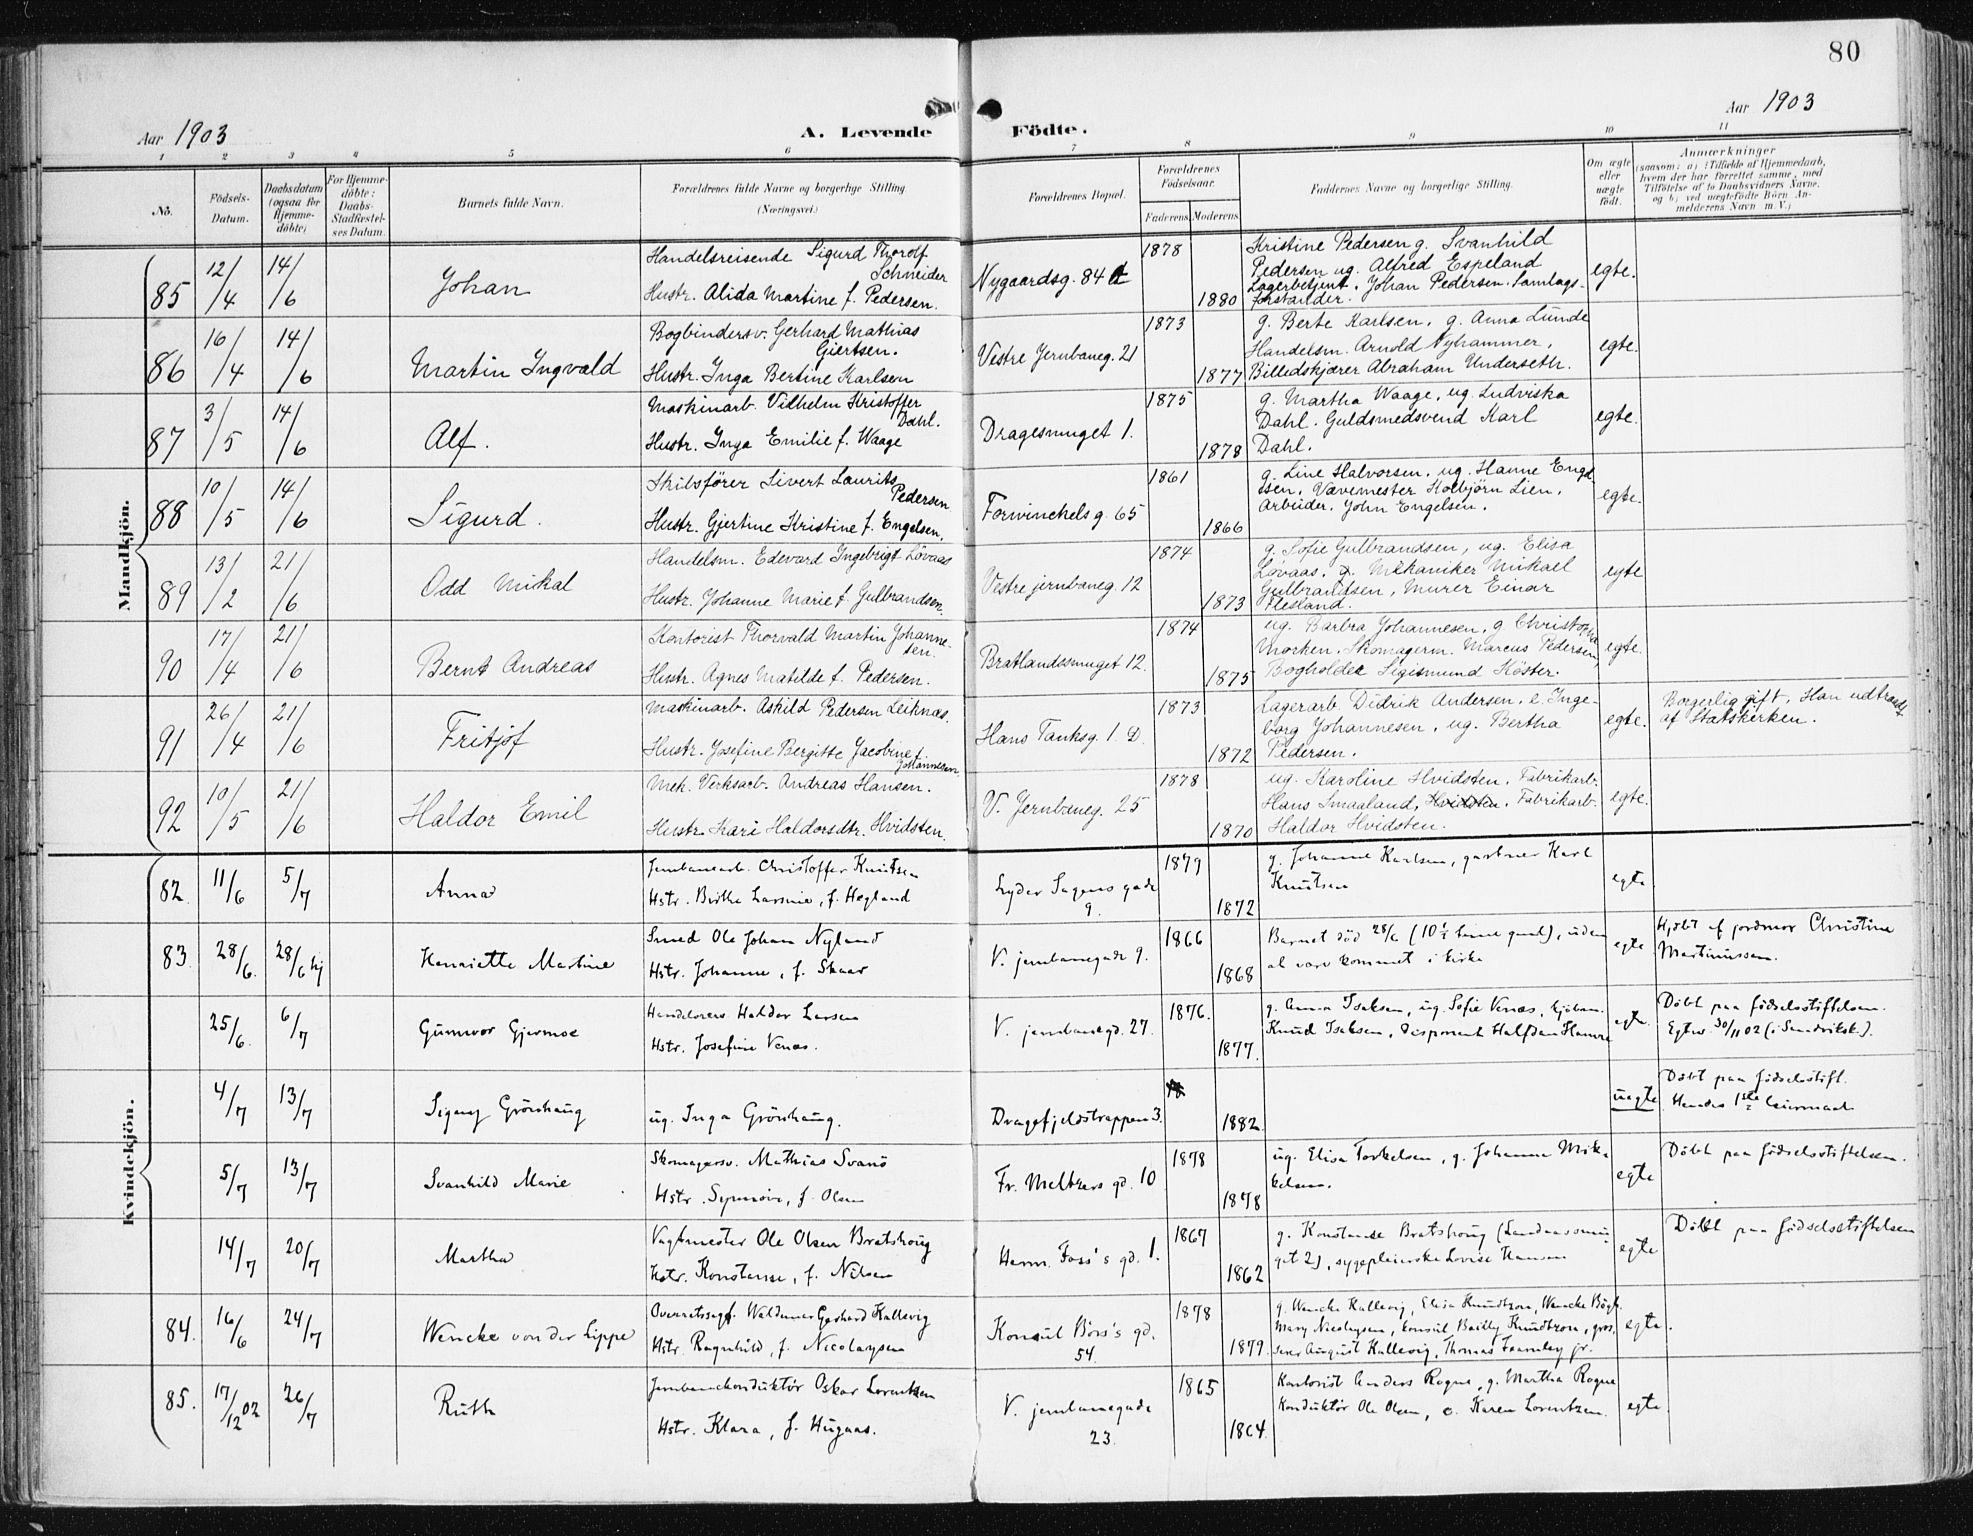 80
Aar 1903
A. Levende Födte.
Aar 1903
1 2 3 4 5 6 7 8 9 10 11
No.
Födsels-
Datum.
Daabsdatum
(ogsaa for
Hjemme-
döbte)
For Hjemme-
döbte:
Daabs-
Stadfæstel-
ses Datum.
Barnets fulde Navn.
Forældrenes fulde Navne og borgerlige Stilling
(Næringsvei.)
Forældrenes Bopæl.
Forældrenes
Födselsaar.
Faderens Moderens
Faddernes Navne og borgerlige Stilling.
Om ægte
eller
uægte
födt.
Anmærkninger
(saasom: a) i Tilfælde af Hjemmedaab,
hvem der har forrettet samme, med
Tilföielse af to Daabsvidners Navne,
og b) ved uægtefödte Börn An-
melderens Navn m. V.)
Mandkjön.
85
12/4
14/6
Johan
Handelsreisende Sigurd Thorolf
Schneider
Hustr. Alida Martine f. Pedersen.
Nygaardsg. 84
1878
1880
Kristine Pedersen g. Svanhild
Pedersen ug. Alfred Espeland
Lagerbetjent. Johan Pedersen. Samlags-
forstander.
egte.
86
16/4
14/6
Martin Ingvald
Bogbindersv. Gerhard Mathias
Giertsen.
Hustr. Inga Bertine Karlsen
Vestre Jernbaneg. 21
1873
1877
g. Berte Karlsen, g. Anna Lunde
Handelsm. Arnold Nyhammer,
Billedskjærer Abraham Underseth.
egte.
87
3/5
14/6
Alf.
Maskinarb. Vilhelm Kristoffer
Dahl.
Hustr. Inga Emilie f. Waage
Dragesmuget 1.
1875
1878
g. Martha Waage, ug. Ludviska
Dahl. Guldsmedsvend Karl
Dahl.
egte.
88
10/5
14/6
Sigurd.
Skibsfører Sivert Laurits
Pedersen
Hustr. Gjertine Kristine f. Engelsen.
Forwinckels g. 65
1861
1866
g. Line Halvorsen, ug. Hanne Engel
sen, Vævemester Kolbjørn Lien,
Arbeider. John Engelsen.
egte.
89
13/2
21/6
Odd Mikal
Handelsm. Edevard Ingebrigt Lövaas
Hustr. Johanne Marie f. Gulbrandsen.
Vestre jernbaneg. 12
1874
1873
g. Sofie Gulbrandsen, ug. Elisa
Lövaas. Mekaniker Mikael
Gulbrandsen, Murer Einar
Flesland.
egte
90
17/4
21/6
Bernt Andreas
Kontorist Thorvald Martin Johanne-
sen.
Hustr. Agnes Matilde f. Pedersen.
Bratlandssmuget 12.
1874
1875
ug. Barbra Johannesen, g. Christopha
Morken. Skomagerm. Marcus Pedersen,
Bogholder Sigismund Köster.
egte.
91
26/4
21/6
Fritjof
Maskinarb. Askild Pedersen Leiknæs.
Hustr. Josefine Bergitte Jacobine f.
Johannesen
Hans Tanksg. 1. D.
1873
1872
Lagerarb. Didrik Andersen. e. Inge-
borg Johannesen, ug. Bertha
Pedersen.
egte.
Borgerlig gift. Han udtraadt
af Statskirken.
92
10/5
21/6
Haldor Emil
Mek. Verksarb. Andreas Hansen.
Hustr. Kari Haldorsdtr. Hvidsten.
V. Jernbaneg. 25
1878
1870
ug. Karoline Hvidsten. Fabrikarb.
Hans Smaaland, Hvidsten. Fabrikarb.
Haldor Hvidsten.
egte.
Kvindekjön.
82.
11/6
5/7
Anna
Jernbanearb. Christoffer Knutsen
Hstr. Birthe Larsine, f. Hegland
Lyder Sagens gade
9.
1879
1872
g. Johanne Karlsen, gartner Karl
Knutsen
egte
83.
28/6.
28/6 hj
Henriette Martine
Smed Ole Johan Nyland
Hstr. Johanne, f. Skaar
V. jernbanegade 9.
1866
1868
Barnet död 28/6 (10½ time gml), uden
at være kommet i kirke
egte
Hj.döbt af jordmor Christine
Martinussen.
25/6.
6/7
Gunvor Gjermoe
Handelsreis. Haldor Larsen
Hstr. Josefine Venæs.
V. jernbanegd. 27.
1876.
1877.
g. Anna Isaksen, ug. Sofie Venæs, kjöbm.
Knud Isaksen, Disponent Halfdan Hamre
egte.
Döbt paa födselsstiftelsen.
Egtev. 30/11 02 (i Sandviksk.).
4/7
13/7
Signy Grönhaug
ug. Inga Grönhaug.
Dragefjeldstrappen 3.
1882.
uegte
Döbt paa födselsstift.
Hendes 1ste leiermaal
5/7
13/7
Svanhild Marie
Skomagersv. Mathias Svanö
Hstr. Synnöve, f. Olsen
Fr. Meltzers gd. 10
1878
1878
ug. Elisa Torkelsen, g. Johanna Mik-
kelsen.
egte
Döbt paa födselsstiftelsen.
14/7
20/7
Martha
Vagtmester Ole Olsen Bratshoug
Hstr. Konstanse, f. Nilsen
Herm. Foss's gd. 1.
1867
1862
g. Konstanse Bratshoug (Landaassmu-
get 2), sygepleierske Lovise Hansen
egte
Döbt paa födselsstiftelsen
84.
16/6
24/7
Wencke von der Lippe
Overretssagf. Waldemar Gerhard Kallevig
Hstr. Ragnhild, f. Nicolaysen
Konsul Börs's gd.
54.
1878
1879.
g. Wencke Kallevig, Elisa Knudtzon, Wencke Bögh,
Mary Nicolaysen, konsul Bailly Knudtzon, gros-
serer August Kallevig, Thomas Fearnley jr.
egte.
85.
17/12 02
26/7
Ruth
Jernbanekonduktör Oskar Lorentzen
Hstr. Klara, f. Hugaas.
V. jernbanegade
23.
1865
1864.
Kontorist Anders Rogne, g. Martha Rogne
Konduktör Ole Olsen, e. Karen Lorentzen.
egte.